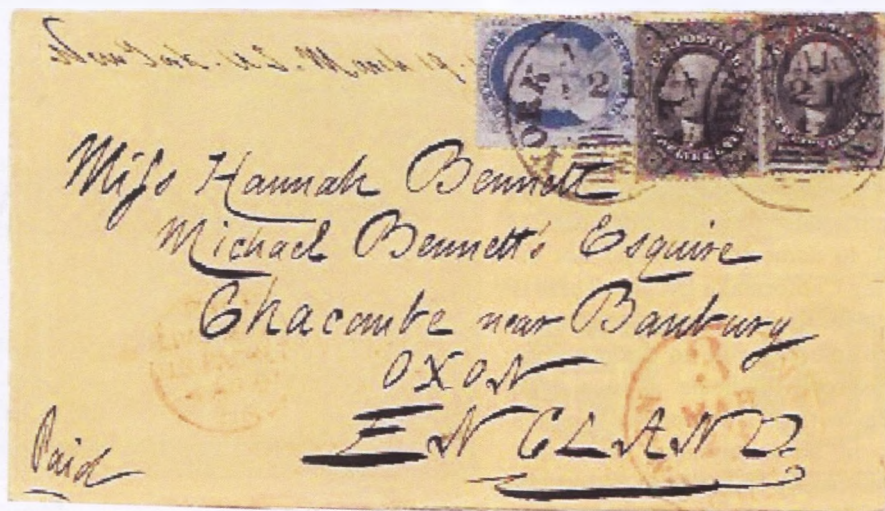 New York. U.S. March 19.
U.S. POSTAGE
YORK
21
21
Miss Hannah Bennett
Michael Bennett's Esquire
Chacombe near Banbury
OXON
ENGLAND.
3
MAR
Paid